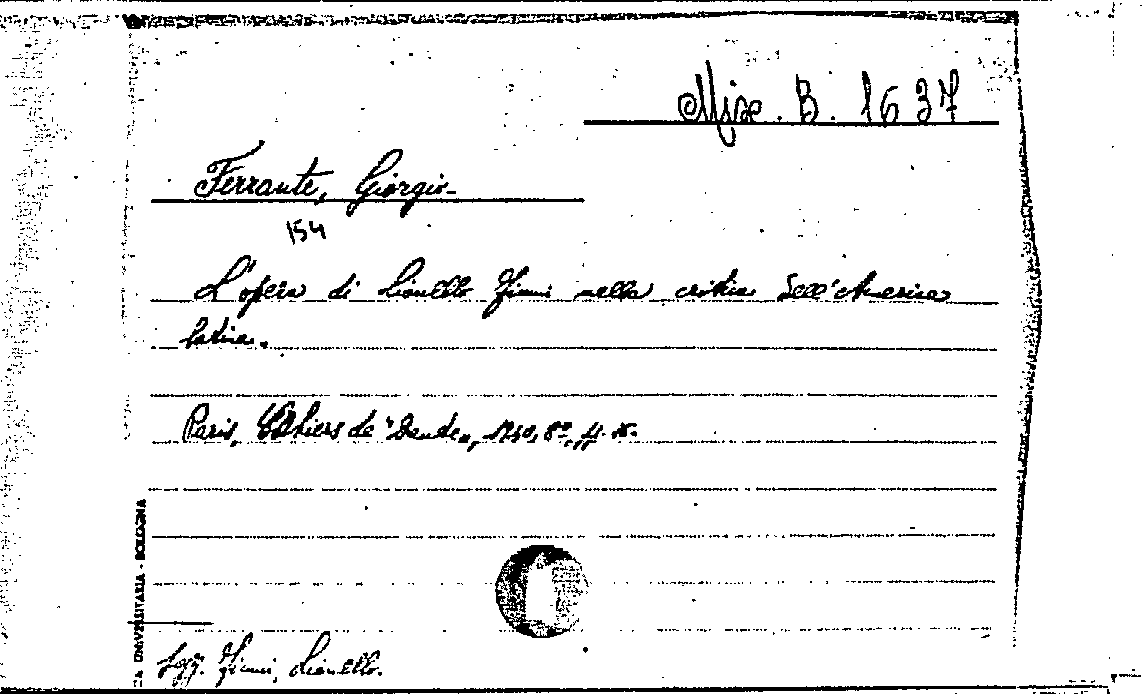 Misc. B. 1637
Ferrante, Giorgio
154
L'opera di Lionello Fiumi nella critica dell'America
latina.
Paris, Cahiers de "Dante", 1940, 8º,
Sogg. Fiumi, Lionello.
CA UNIVERSITARIA - BOLOGNA